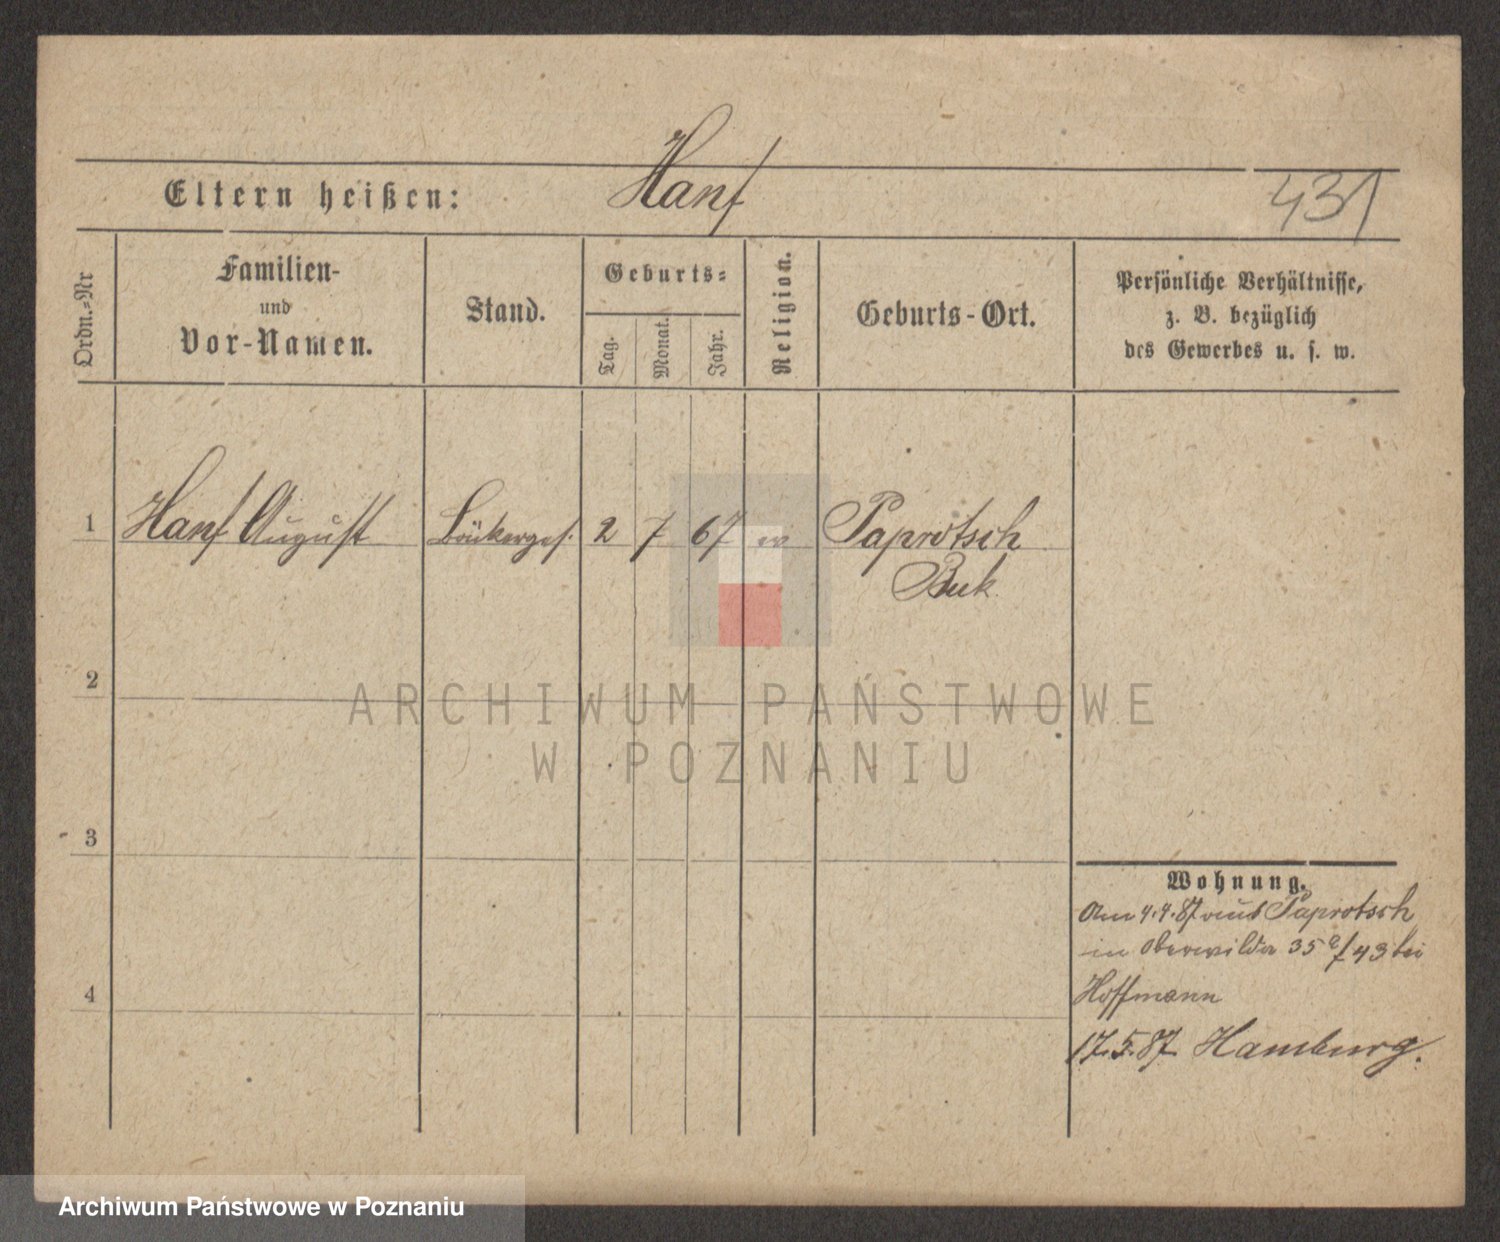 Hanf
Eltern heißen:
431
Ordn.-Nr
Familien-
und
Vor-Namen.
Stand.
Geburts-
Tag.
Monat.
Jahr.
Religion.
Geburts-Ort.
Persönliche Verhältnisse,
z. B. bezüglich
des Gewerbes u. s. w.
1 Hanf August Bäckerges. 2 7 67 ev Paprotsch
Buk
2
ARCHIWUM PAŃSTWOWE
W POZNANIU
3
Wohnung.
Am 4.4.87 aus Paprotsch
in Oberwilda 35 a/43 bei
4
Hoffmann
17.5.87 Hamburg.
Archiwum Państwowe w Poznaniu